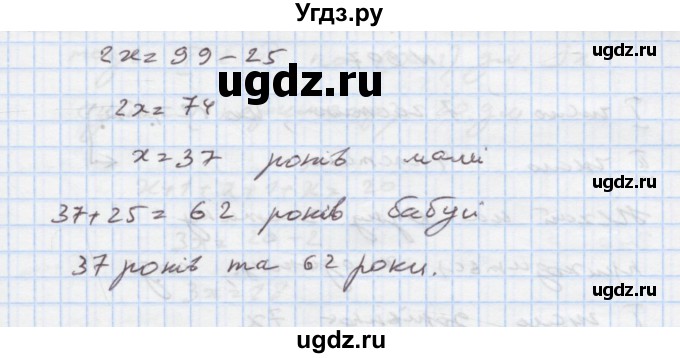 Угдз.ру
2x = 99 - 25
ugdz.ru
2x = 74
x = 37 років мамі
ugdz.ru
37 + 25 = 62 років бабусі
ugdz.ru
37 років та 62 роки.
ugdz.ru
ugdz.ru